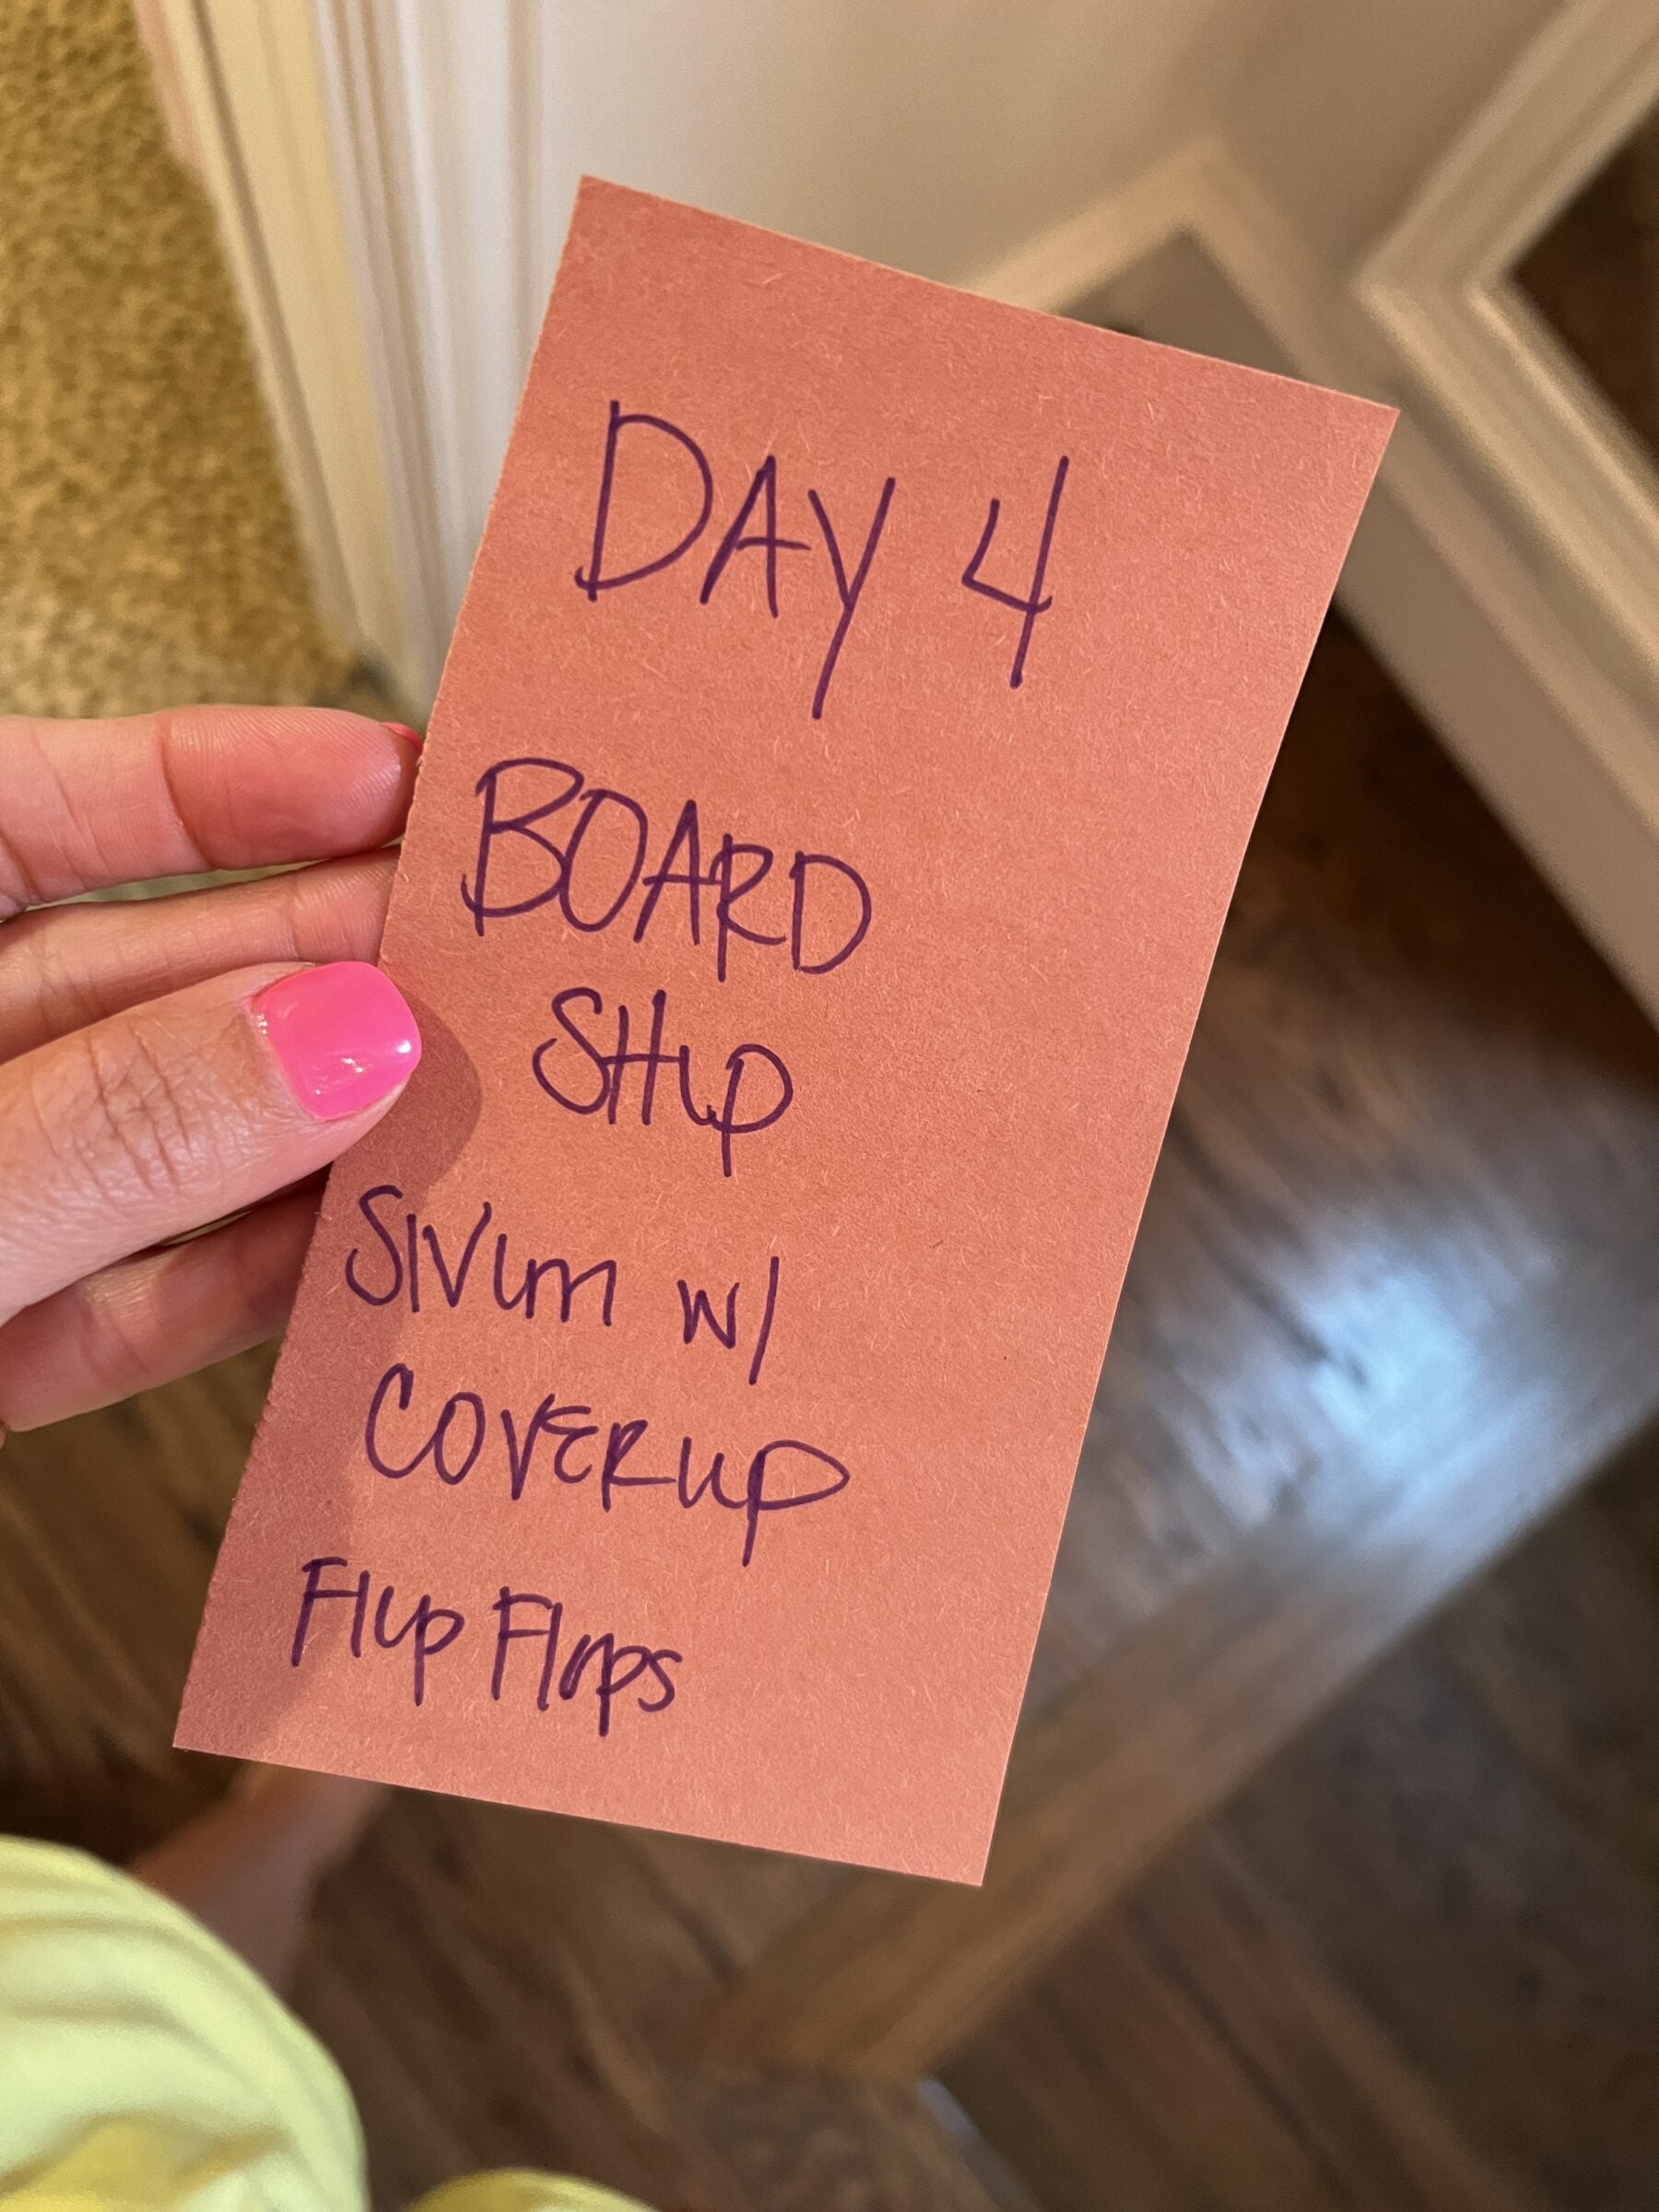 DAY 4
BOARD
SHIP
SWIM w/
COVERUP
Flip Flops